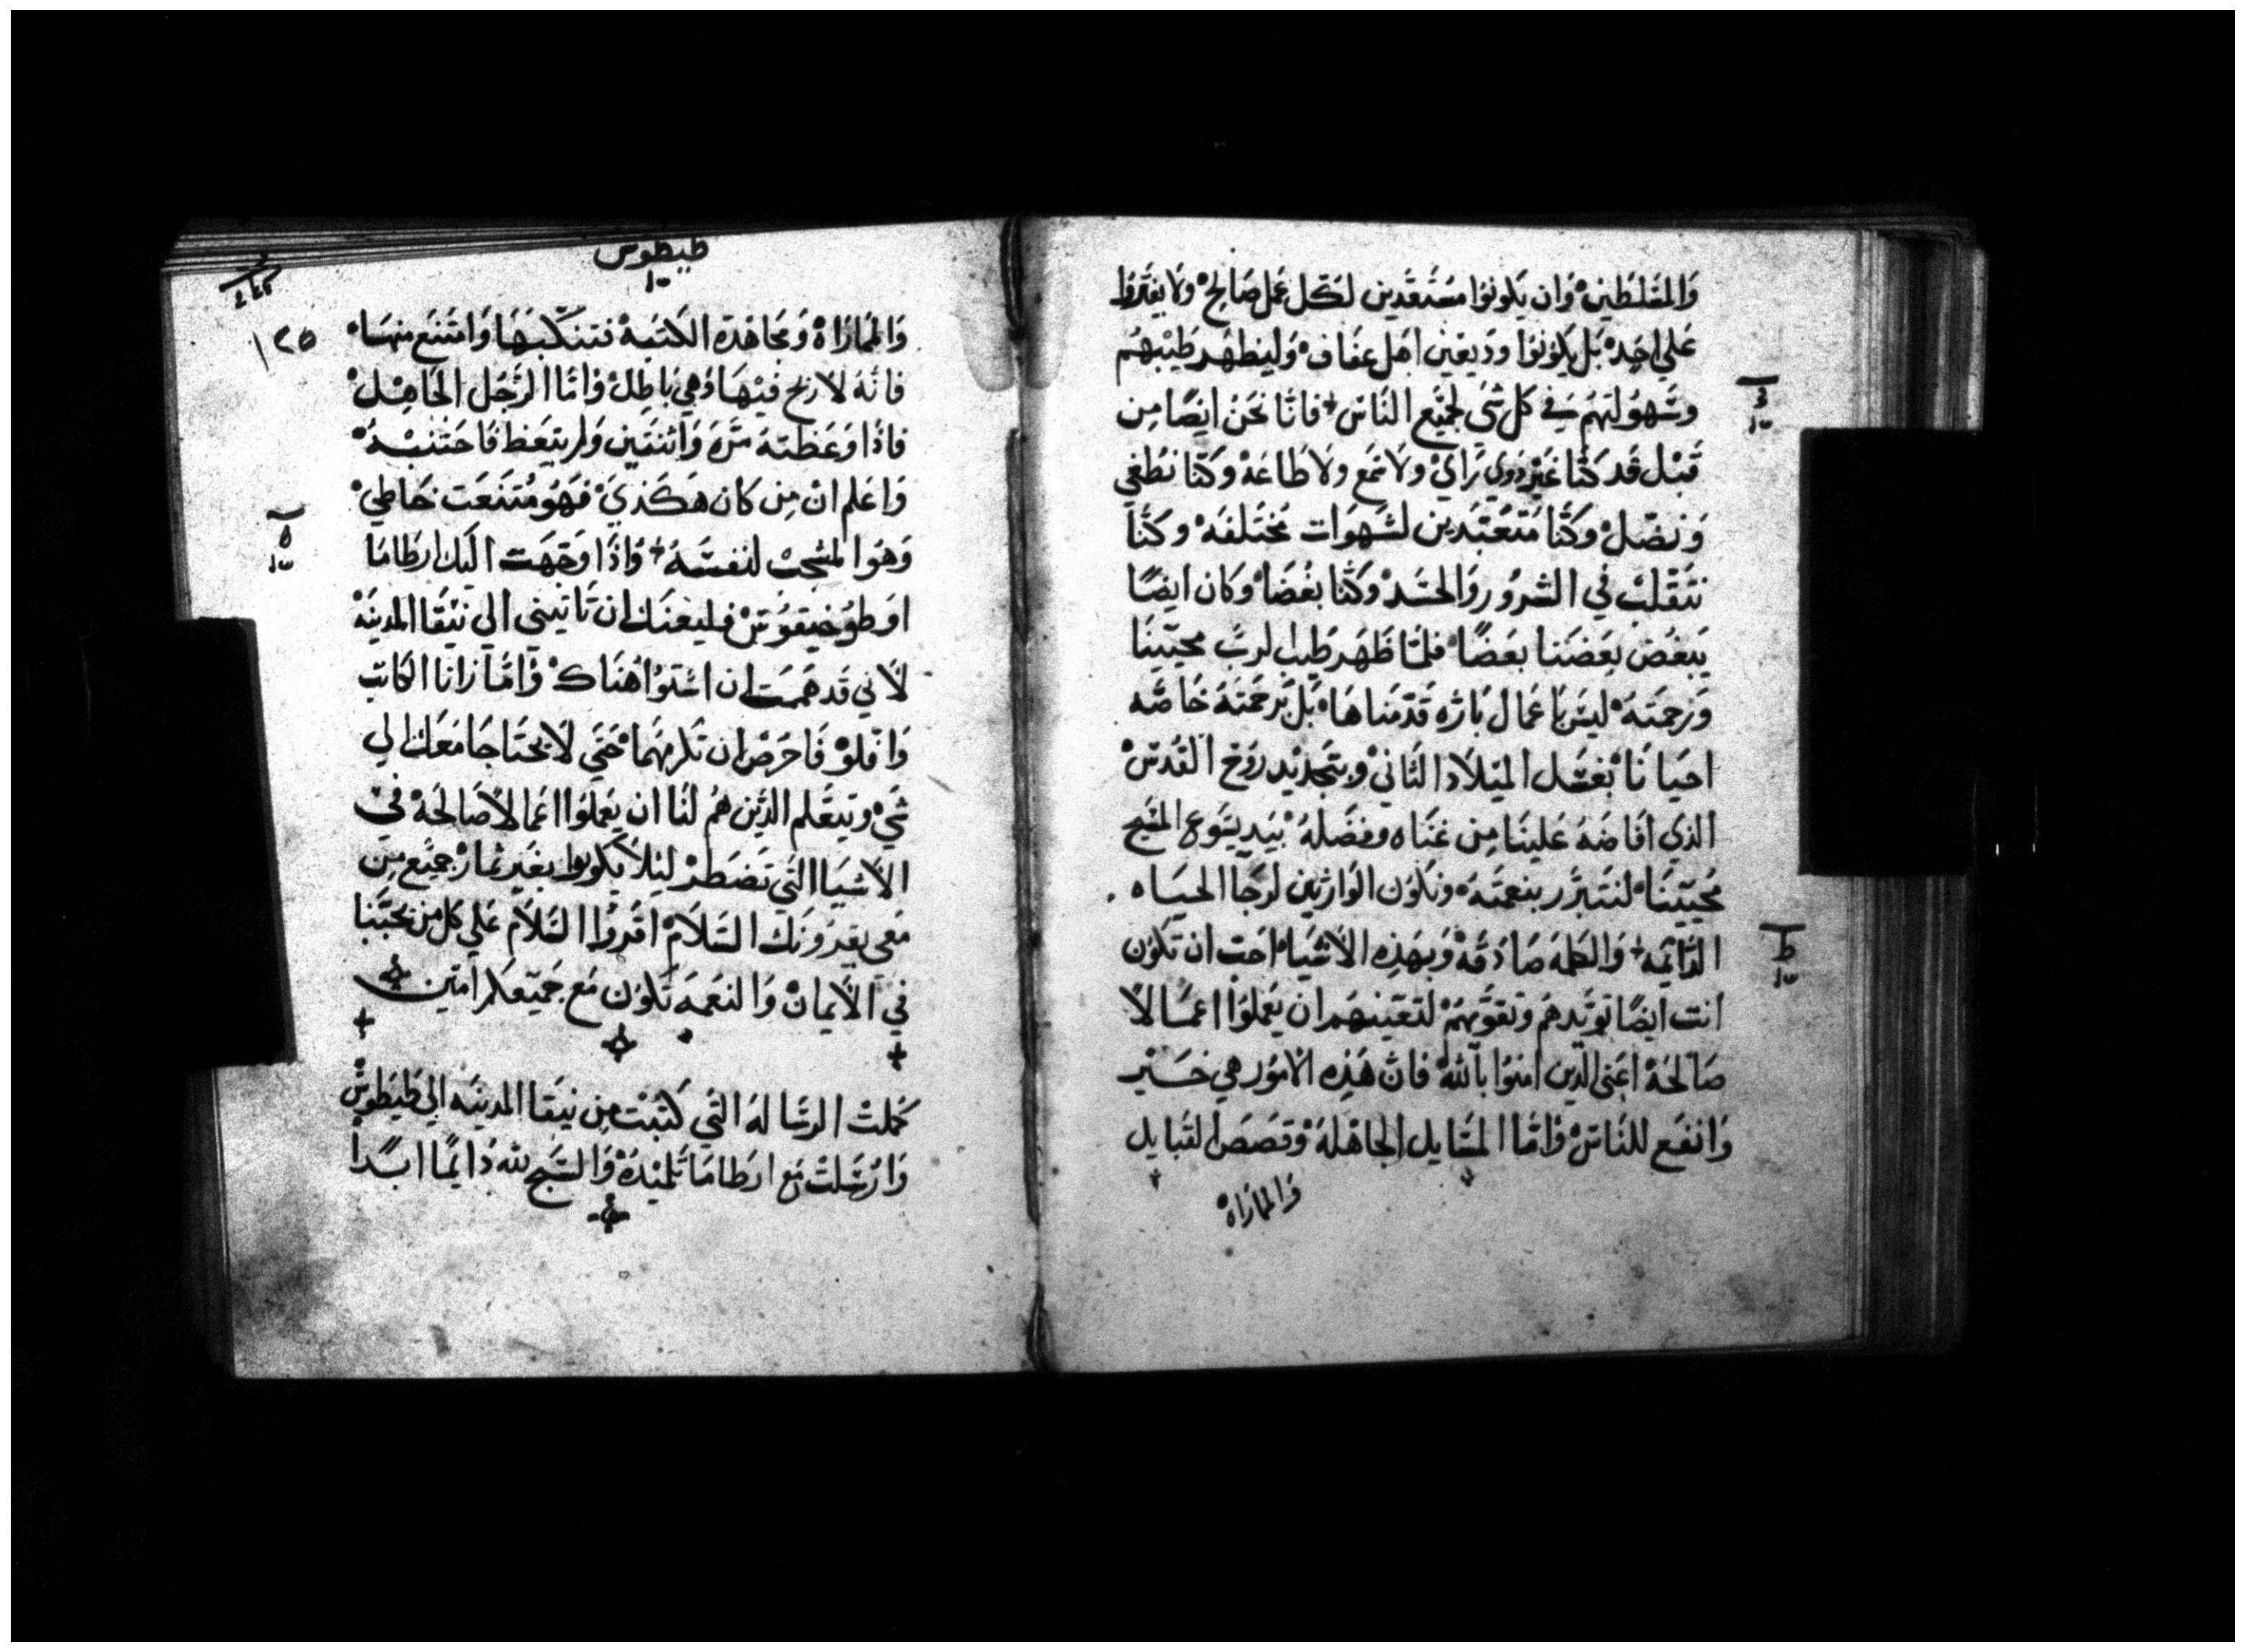 والمسلطين وان يكونوا مستعدين لكل عمل صالح ولا يفتروا
علي احد بل يكونوا وديعين اهل عفاف وليظهر طيبهم
وسهولتهم في كل شي لجميع الناس فانا نحن ايضا من
قبل قد كنا غير ذوي راي ولا سمع ولا طاعه وكنا نطغي
ونضل وكنا متعبدين لشهوات مختلفه وكنا
نتقلب في الشرور والحسد وكنا بغضا وكان ايضا
يبغض بعضنا بعضا فلما ظهر طيب الرب محيينا
ورحمته ليس باعمال باره قدمناها بل برحمته خاصه
احيانا بغسل الميلاد الثاني وبتجديد روح القدس
الذي افاضه علينا من غناه وفضله بيد يسوع المسيح
محيينا لنتبرر بنعمته ونكون الوارثين لرجا الحياه
الدايمه والكلمه صادقه وبهذه الاشيا احب ان تكون
انت ايضا تويدهم وتقويهم لتعينهم ان يعملوا اعمالا
صالحة اعني الذين امنوا بالله فان هذه الامور هي خير
وانفع للناس واما المسايل الجاهلة وقصص القبايل
والماراة
طيطوس
١٢٥
والماراة ومجاهدة الكتبة فتنكبها وامتنع منها
فانه لا ربح فيها وهي باطل واما الرجل الجاهل
فاذا وعظته مره واثنتين ولم يتعظ فاجتنبه
واعلم ان من كان هكذي فهو متنعت خاطي
وهو المشجب لنفسه واذا وجهت اليك ارطاما
او طوخيقوس فليعنك ان تاتيني الي نيقا المدينه
لاني قد هممت ان اشتوا هناك واما زانا الكاتب
وافلو فاحرص ان تكرمهما حتي لا يحتاجا معك الي
شي ويتعلم الذين هم لنا ان يعملوا اعمالا صالحة في
الاشيا التي تضطر ليلا يكونوا بغير ثمار جميع من
معي يقرونك السلام اقروا السلام علي كل من يحبنا
في الايمان والنعمه تكون مع جميعكم امين
كملت الرسالة التي كتبت من نيقا المدينه الي طيطوس
وارسلت مع ارطاما تلميذه والسبح لله دايما ابدا